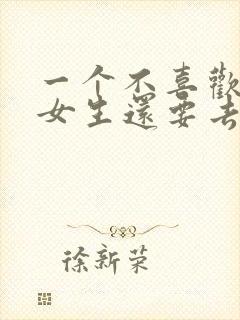 一个不喜歡
女生還要去
徐新荣